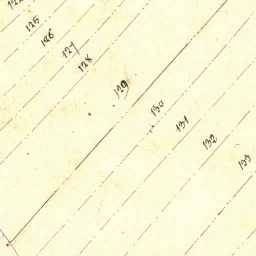 125
126
127
128
129
130
131
132
133